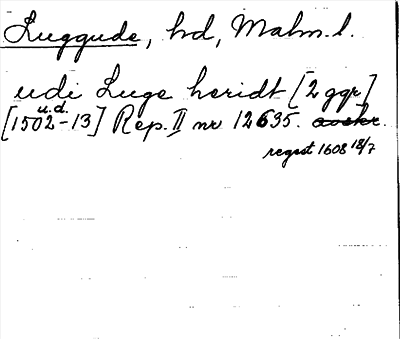 Luggude, hd, Malm.l.
udi Luge heridt [2 ggr]
u.d.
[1502-13] Rep. II nr 12635. avskr.
regest 1608 18/7